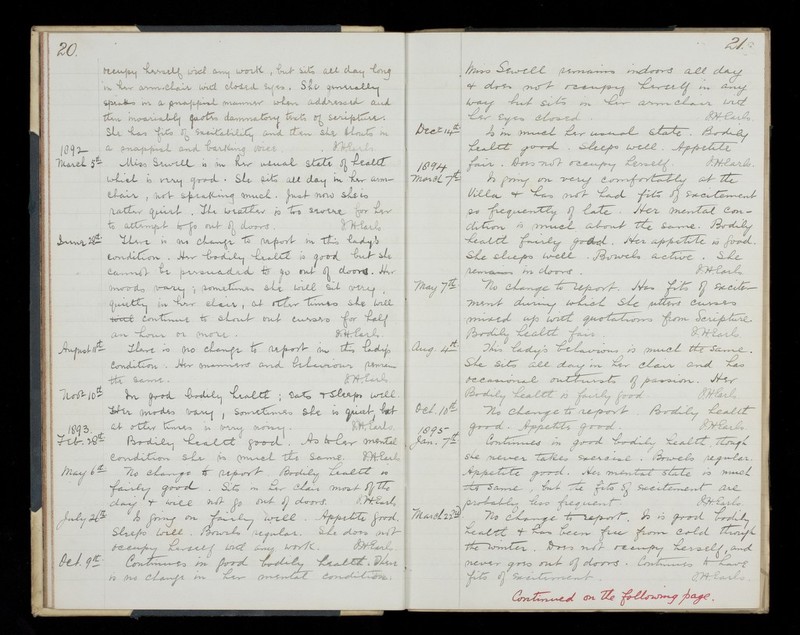 20.
occupy herself with any work, but sits all day long
in her arm-chair with closed eyes. She generally
speaks in a snappish manner when addressed and
then invariably quotes damnatory texts of scripture.
She has fits of excitability and then she shouts in
a snappish and barking voice.
1892
March 5th Miss Sewell is in her usual state of health
which is very good. She sits all day in her arm-
chair, not speaking much. Just now she is
rather quiet. The weather is too severe for her
to attempt to go out of doors.
June 28th There is no change to report in this lady's
condition. Her bodily health is good but she
cannot be persuaded to go out of doors. Her
moods vary; sometimes she will sit very
quietly in her chair, at other times she will
continue to shout out curses for half
an hour or more.
August 10th There is no change to report in this lady's
condition. Her manners and behaviour remain
the same.
Novr 10th In good bodily health; eats & sleeps well.
Her modes vary, sometimes she is quiet, but
at other times is very noisy.
1893.
Feb. 28th Bodily health good. As to her mental
condition she is much the same.
May 6th No change to report. Bodily health is
fairly good. Sits in her chair most of the
day & will not go out of doors.
July 26th Is going on fairly well. Appetite good.
Sleeps well. Bowels regular. She does not
occupy herself with any work.
Oct. 9th Continues in good bodily health. There
is no change in her mental condition.
21.
Miss Sewell remains indoors all day
& does not occupy herself in any
way but sits in her arm chair with
her eyes closed.
Decr 14th Is in much her usual state. Bodily
health good. Sleeps well. Appetite
fair. Does not occupy herself.
1894
March 7th Is going on very comfortably at the
Villa & has not had fits of excitement
so frequently of late. Her mental con-
dition is much about the same. Bodily
health fairly good. Her appetite is good.
She sleeps well. Bowels active. She
remains in doors.
May 7th No change to report. Has fits of excite-
ment during which she utters curses
mixed up with quotations from Scripture.
Bodily health fair.
Aug. 4th This lady's behaviour is much the same.
She sits all day in her chair and has
occasional outbursts of passion. Her
Bodily health is fairly good.
Oct. 10th No change to report. Bodily health
good. Appetite good.
1895
Jan. 7th Continues in good bodily health, though
she never takes exercise. Bowels regular.
Appetite good. Her mental state is much
the same, but the fits of excitement are
probably less frequent.
March 22nd No change to report. Is in good bodily
health & has been free from cold through
the winter. Does not occupy herself, and
never goes out of doors. Continues to have
fits of excitement.
Continued on the following page.